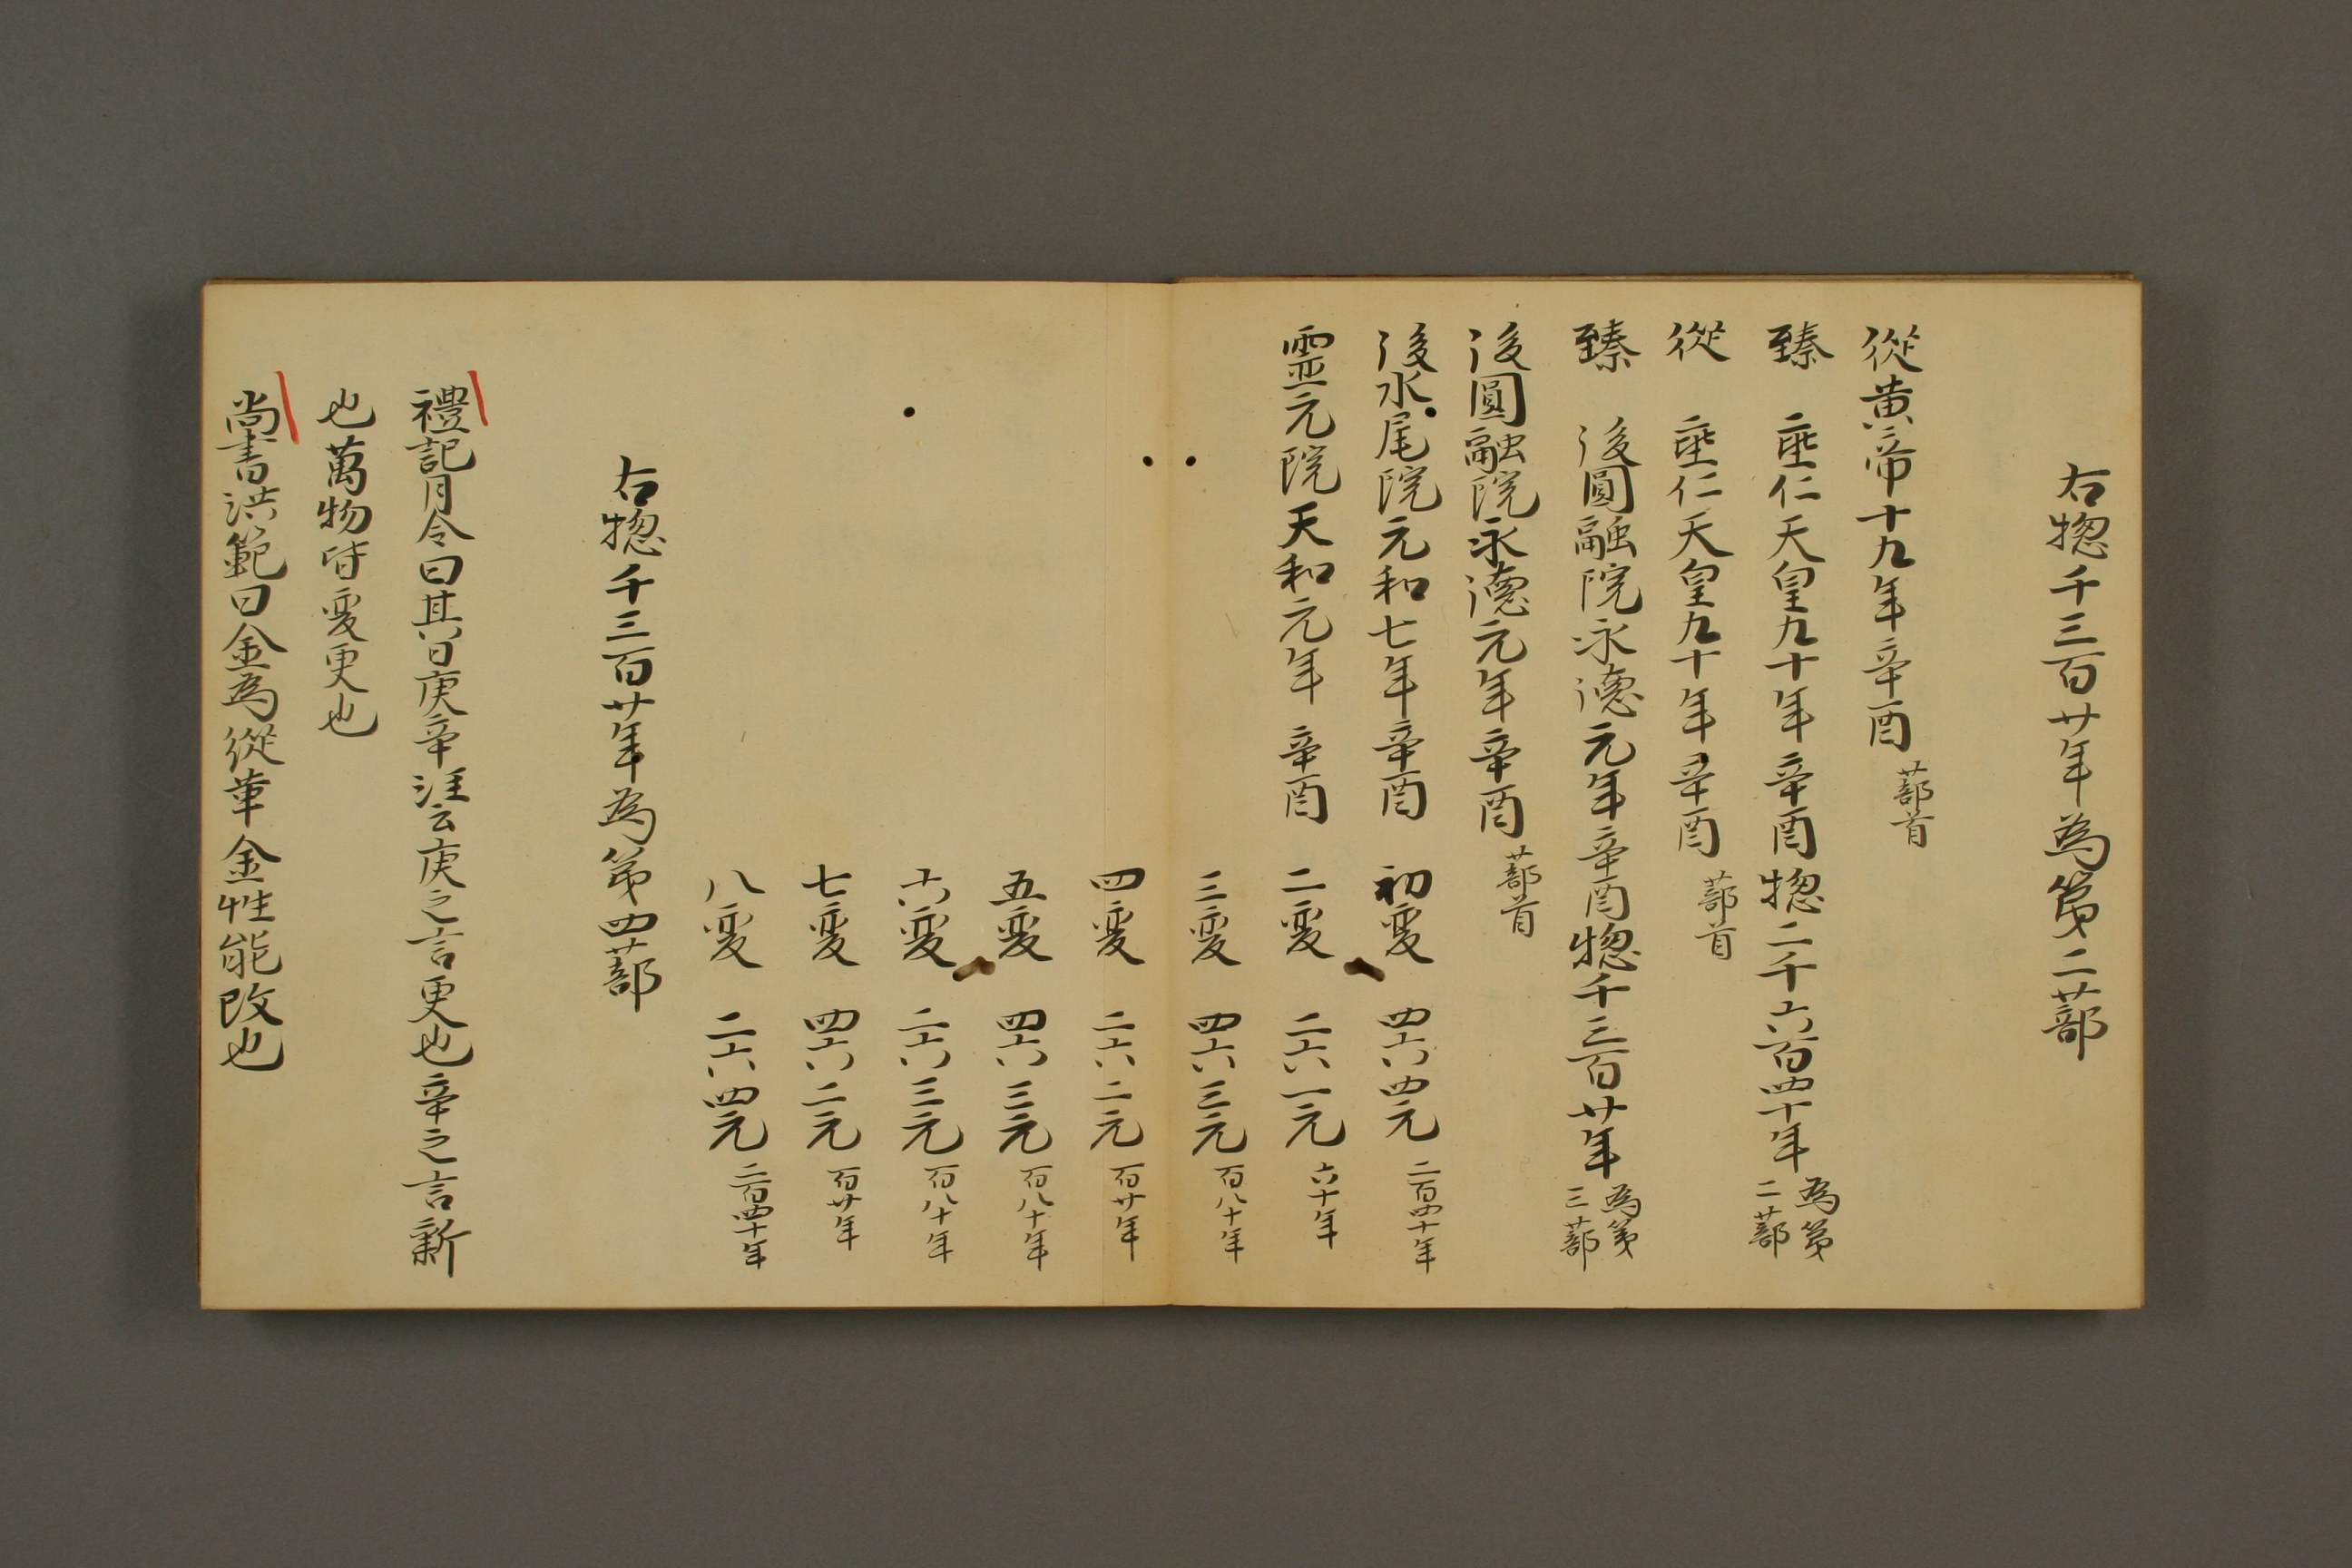 右惣千三百廿年為第二蔀
從黄帝十九年辛酉 蔀首
臻 垂仁天皇九十年辛酉惣二千六百四十年 為第二蔀
從 垂仁天皇九十年辛酉 蔀首
臻 後圓融院永德元年辛酉惣千三百廿年 為第三蔀
後圓融院永德元年辛酉 蔀首
後水尾院元和七年辛酉 初変 四六四元 二百四十年
霊元院天和元年 辛酉 二変 二六一元 六十年
三変 四六三元 百八十年
四変 二六二元 百廿年
五変 四六三元 百八十年
六変 二六三元 百八十年
七変 四六二元 百廿年
八変 二六四元 二百四十年
右惣千三百廿年為第四蔀
禮記月令曰其日庚辛注云庚之言更也辛之言新
也萬物皆変更也
尚書洪範曰金為從革金性能改也